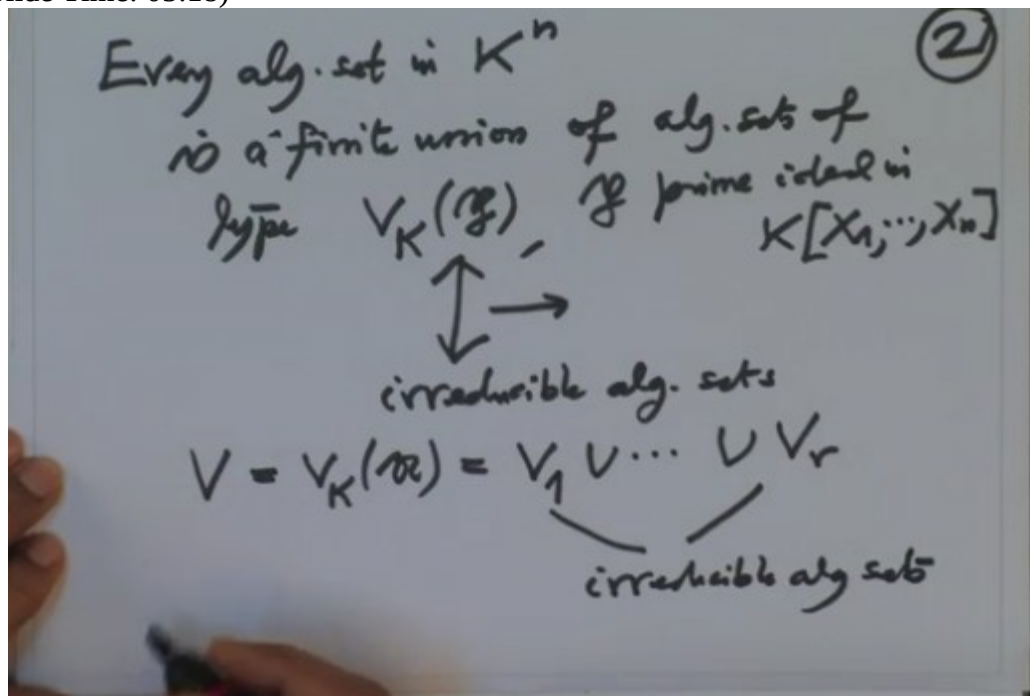 Every alg. set in Kⁿ
②
is a finite union of alg. sets of
type V_K(𝔭), 𝔭 prime ideal in
K[X₁,…,Xₙ]
irreducible alg. sets
V = V_K(𝔞) = V₁ ∪ ⋯ ∪ Vᵣ
irreducible alg sets